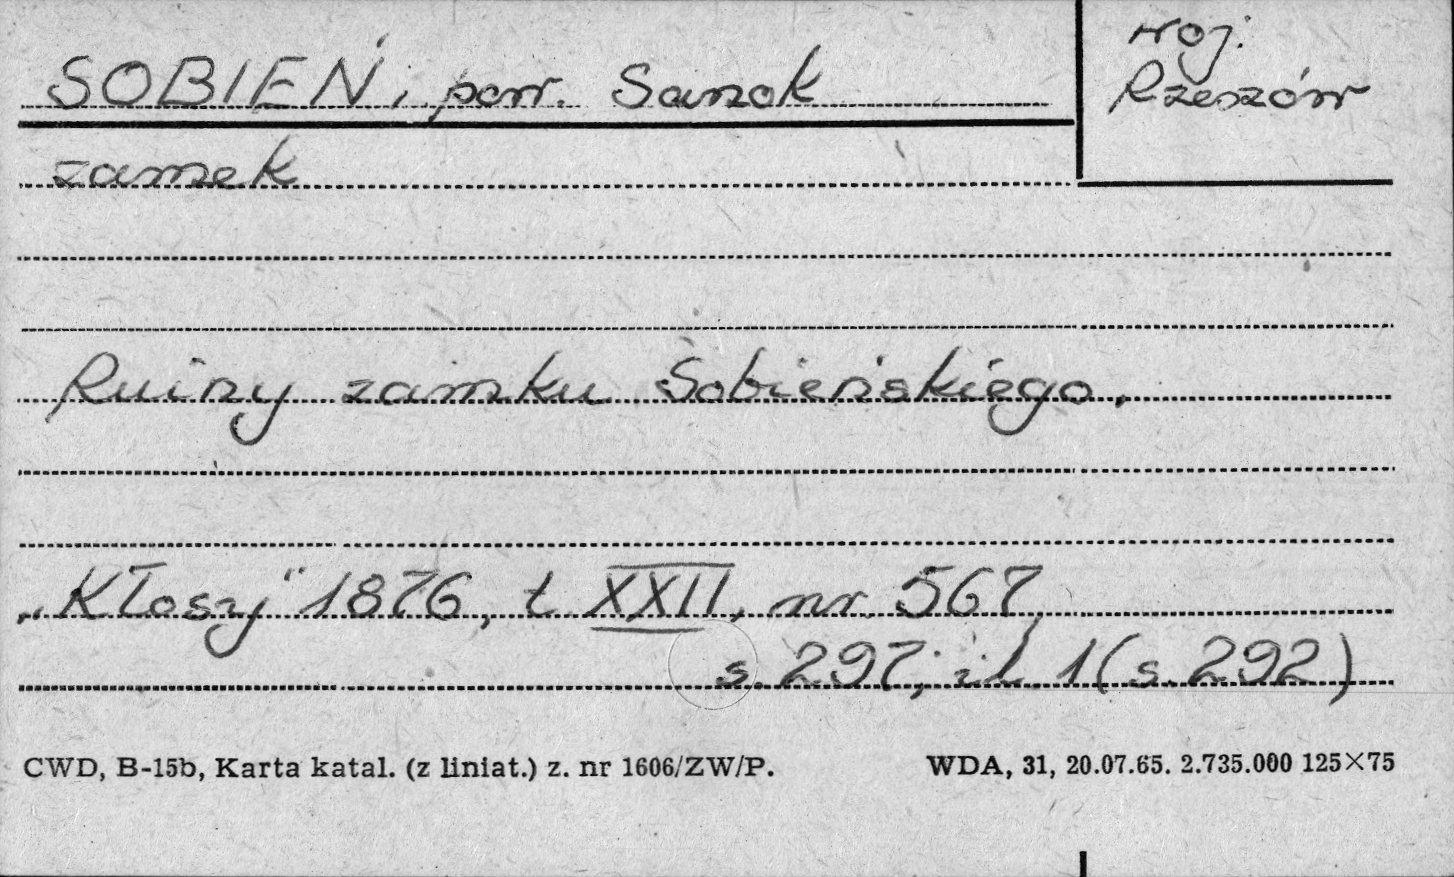 SOBIEŃ, pow. Sanok
woj.
Rzeszów
zamek
Ruiny zamku Sobieńskiego.
„Kłosy" 1876, t XXII, nr. 567,
s. 297, il. 1 (s. 292)
CWD, B-15b, Karta katal. (z liniat.) z. nr 1606/ZW/P.
WDA, 31, 20.07.65. 2.735.000 125×75